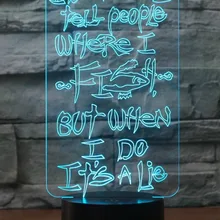 tell people
WHERE I
BUT WHEN
I DO
IT'S A Lie